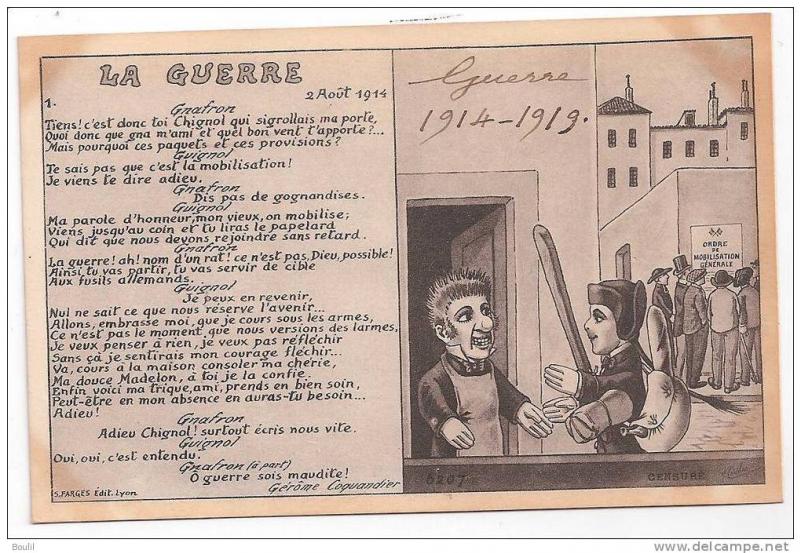 LA GUERRE
2 Août 1914
1.
Gnafron
Tiens! c'est donc toi Chignol qui sigrollais ma porte,
Quoi donc que gna m'ami et quel bon vent t'apporte?...
Mais pourquoi ces paquets et ces provisions?
Guignol
Te sais pas que c'est la mobilisation!
Je viens te dire adieu.
Gnafron
Dis pas de gognandises.
Guignol
Ma parole d'honneur, mon vieux, on mobilise;
Viens jusqu'au coin et tu liras le papelard
Qui dit que nous devons rejoindre sans retard.
Gnafron
La guerre! ah! nom d'un rat! ce n'est pas, Dieu, possible!
Ainsi tu vas partir, tu vas servir de cible
Aux fusils allemands.
Guignol
Je peux en revenir,
Nul ne sait ce que nous réserve l'avenir...
Allons, embrasse moi, que je cours sous les armes,
Ce n'est pas le moment que nous versions des larmes,
Je veux penser à rien, je veux pas réfléchir
Sans çà je sentirais mon courage fléchir...
Va, cours à la maison consoler ma chérie,
Ma douce Madelon, à toi je la confie.
Enfin voici ma trique, ami, prends en bien soin,
Peut-être en mon absence en auras-tu besoin...
Adieu!
Gnafron
Adieu Chignol! surtout écris nous vite.
Guignol
Oui, oui, c'est entendu.
Gnafron (à part)
O guerre sois maudite!
Gérôme Coquandier
S. FARGES Edit. Lyon
Guerre
1914-1919.
ORDRE
DE
MOBILISATION
GÉNÉRALE
6207
CENSURÉ
Boulil
www.delcampe.net